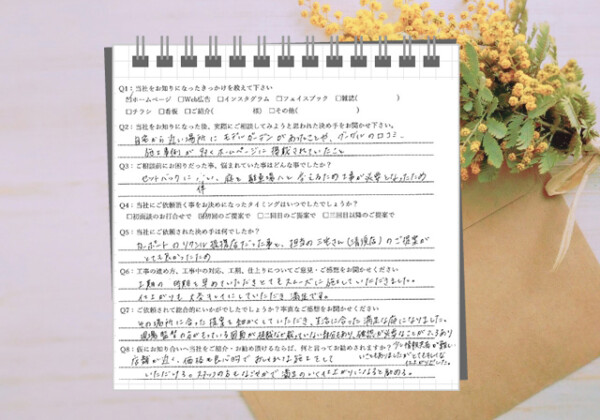 Q1：当社をお知りになったきっかけを教えて下さい
☑ホームページ □Web広告 □インスタグラム □フェイスブック □雑誌（ ）
□チラシ □看板 □ご紹介（ 様） □その他（ ）
Q2：当社をお知りになった後、実際にご相談してみようと思われた決め手をお聞かせ下さい。
自宅から近い場所にモデルガーデンがあったことや、グーグルの口コミ
施工事例が多くホームページに掲載されていたこと
Q3：ご相談前にお困りだった事、悩まれていた事はどんな事でしたか？
セットバックに伴い、庭と駐車場 工事が必要となったため
Q4：当社にご依頼頂く事をお決めになったタイミングはいつでしたでしょうか？
□初面談のお打合せで ☑初回のご提案で □二回目のご提案で □三回目以降のご提案で
Q5：当社にご依頼された決め手は何でしたか？
カーポートのリクシル 店だった事と、担当の三宅さん のご提案が
とても良かったため
Q6：工事の進め方、工事中の対応、工期、仕上りについてご意見・ご感想をお聞かせください
工期の 時期を早めていただきとてもスムーズに施工していただきました。
仕上がりも 大変キレイにしていただき、満足です。
Q7：ご依頼されて総合的にいかがでしたでしょうか？率直なご感想をお聞かせください
その場所に合った提案を細かくしていただき、生活に合った満足な庭になりました。
現場監督の方がもっている図面が 部分もあり、確認が必要なことが
Q8：仮にお知り合いへ当社をご紹介・お勧め頂けるならば、何と言ってお勧めされますか？
いただける。スタッフの方も で満足のいく仕上がりになると勧める。